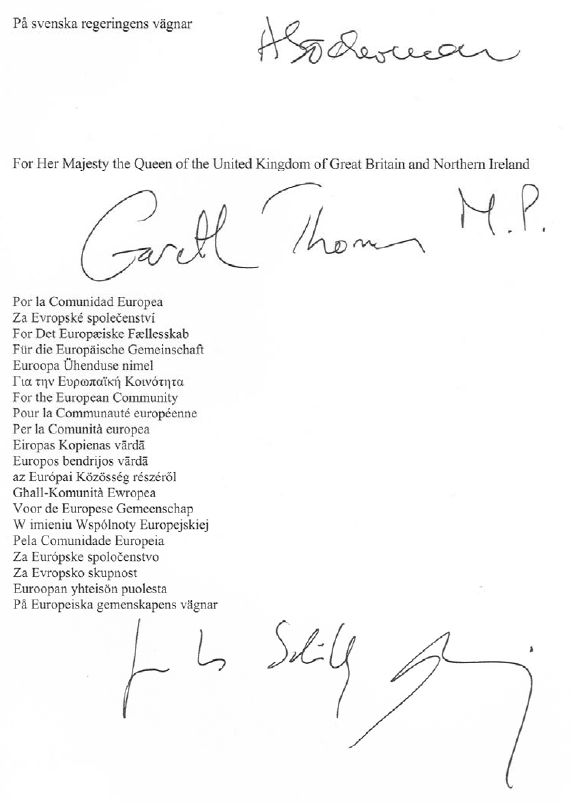 På svenska regeringens vägnar
For Her Majesty the Queen of the United Kingdom of Great Britain and Northern Ireland
Gareth Thomas M.P.
Por la Comunidad Europea
Za Evropské společenství
For Det Europæiske Fællesskab
Für die Europäische Gemeinschaft
Euroopa Ühenduse nimel
Για την Ευρωπαϊκή Κοινότητα
For the European Community
Pour la Communauté européenne
Per la Comunità europea
Eiropas Kopienas vārdā
Europos bendrijos vārdā
az Európai Közösség részéről
Għall-Komunità Ewropea
Voor de Europese Gemeenschap
W imieniu Wspólnoty Europejskiej
Pela Comunidade Europeia
Za Európske spoločenstvo
Za Evropsko skupnost
Euroopan yhteisön puolesta
På Europeiska gemenskapens vägnar